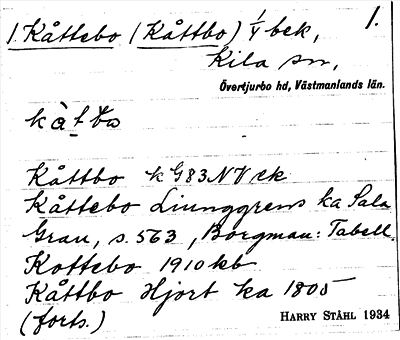 1. Kåttebo (Kåttbo) 1/4 bek, 1.
Kila sn,
Övertjurbo hd, Västmanlands län.
kåtbo
Kåttbo k G83NV ek
Kåttebo Ljunggrens ka Sala
Gran, s. 563, Borgman: Tabell.
Kottebo 1910 kb
Kåttbo Hjort ka 1805
(forts.) HARRY STÅHL 1934